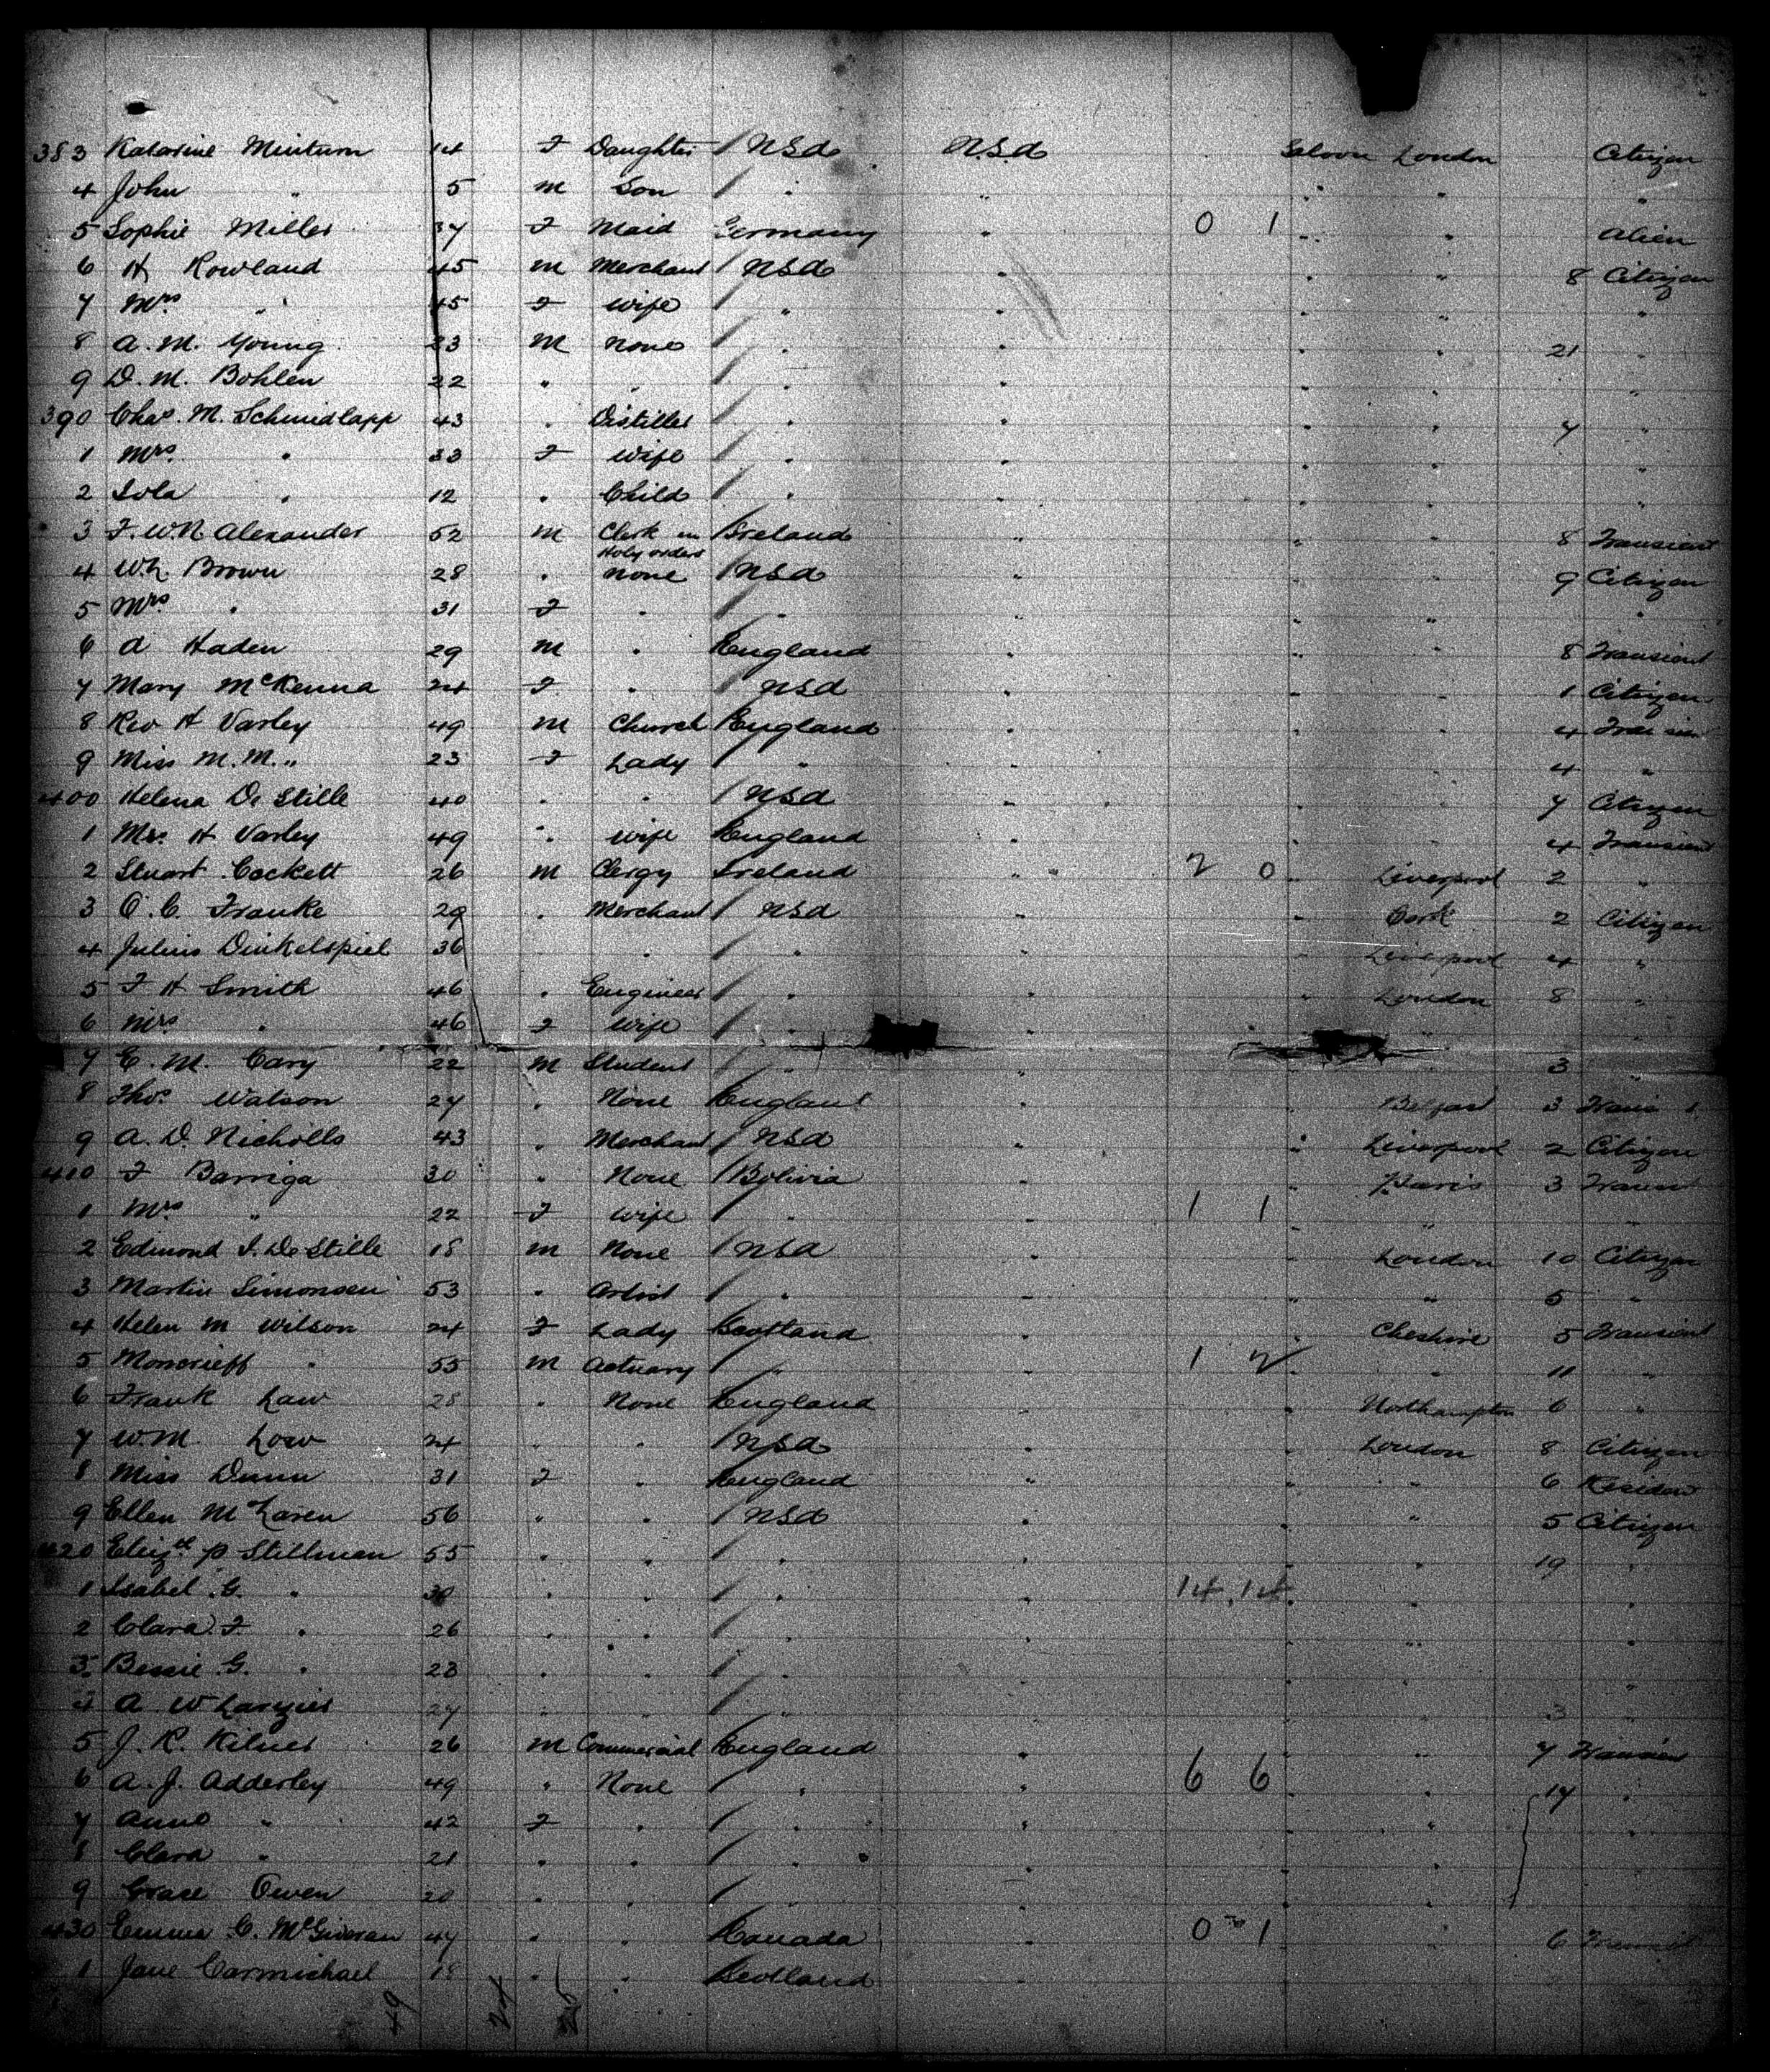 383 Katarine Minturn 14 F Daughter / USA U.S.A Saloon London Citizen
4 John " 5 M Son / " " " " "
5 Sophie Miller 37 F Maid Germany " 0 1 " " Alien
6 H Rowland 45 M Merchant / USA " " " 8 Citizen
7 Mrs " 45 F Wife / " " " "
8 A. M. Young 23 M None / " " " " 21 "
9 D. M. Bohlen 22 " " / " " " " "
390 Chas. M. Schmidlapp 43 " Distiller / " " " " 7 "
1 Mrs. " 33 F Wife / " " " " "
2 Lola " 12 " Child / " " " " "
3 F. W. R Alexander 52 M Clerk in Holy orders / Ireland " " " 8 Transient
4 W. L. Brown 28 " None / USA " " " 9 Citizen
5 Mrs " 31 F " / " " " " "
6 A Haden 29 M " England " " " 8 Transient
7 Mary McKenna 24 F " / USA " " " 1 Citizen
8 Rev H Varley 49 M Church England " " " 4 Transient
9 Miss M. M. " 23 F Lady / " " " " 4 "
400 Helena De Stille 40 " " / USA " " " 7 Citizen
1 Mrs. H Varley 49 " Wife England " " 4 Transient
2 Stuart Cockett 26 M Clergy Ireland " 2 0 " Liverpool 2 "
3 O. C. Franke 29 " Merchant / USA " " Cork 2 Citizen
4 Julius Dinkelspiel 36 " / " " " Liverpool 4 "
5 F H Smith 46 " Engineer / " " " London 8 "
6 Mrs " 46 F Wife / " " "
7 E. M. Cary 22 M Student / " " 3 "
8 Thos. Watson 27 " None England " " Belfast 3
9 A. D. Nicholls 43 " Merchant / USA " " Liverpool 2 Citizen
410 F Barriga 30 " None / Bolivia " Paris 3 Transient
1 Mrs " 22 F Wife / " " 1 1 " " "
2 Edmond I. De Stille 18 M None / USA " " London 10 Citizen
3 Martin Simonsen 53 " Artist / " " " " 5 "
4 Helen M Wilson 24 F Lady Scotland " " Cheshire 5 Transient
5 Moncrieff " 55 M Actuary / " " 1 2 " " 11 "
6 Frank Law 28 " None England " " Northampton 6 "
7 W. M. Low 24 " " / USA " " London 8 Citizen
8 Miss Dunn 31 F " England " " " 6 Resident
9 Ellen McLaren 56 " " / USA " " " 5 Citizen
420 Elizth P Stillman 55 " " / " " " " 19 "
1 Isabel G. " 30 " " / " " 14 14 " " "
2 Clara F. " 26 " " / " " " " "
3 Bessie G. " 23 " " / " " " " "
4 A W 27 " " / " " 3 "
5 J. R. Kilner 26 M Commercial England " " " 7 Transient
6 A. J. Adderley 49 " None / " " 6 6 " " 17 "
7 Anne " 42 F " / " " " " "
8 Clara " 21 " " / " " " "
9 Grace Owen 20 " " / "
430 Emma C. McGiveran 47 " " Canada " 0 1 " " 6 Transient
1 Jane Carmichael 18 " " Scotland "
49 24 25